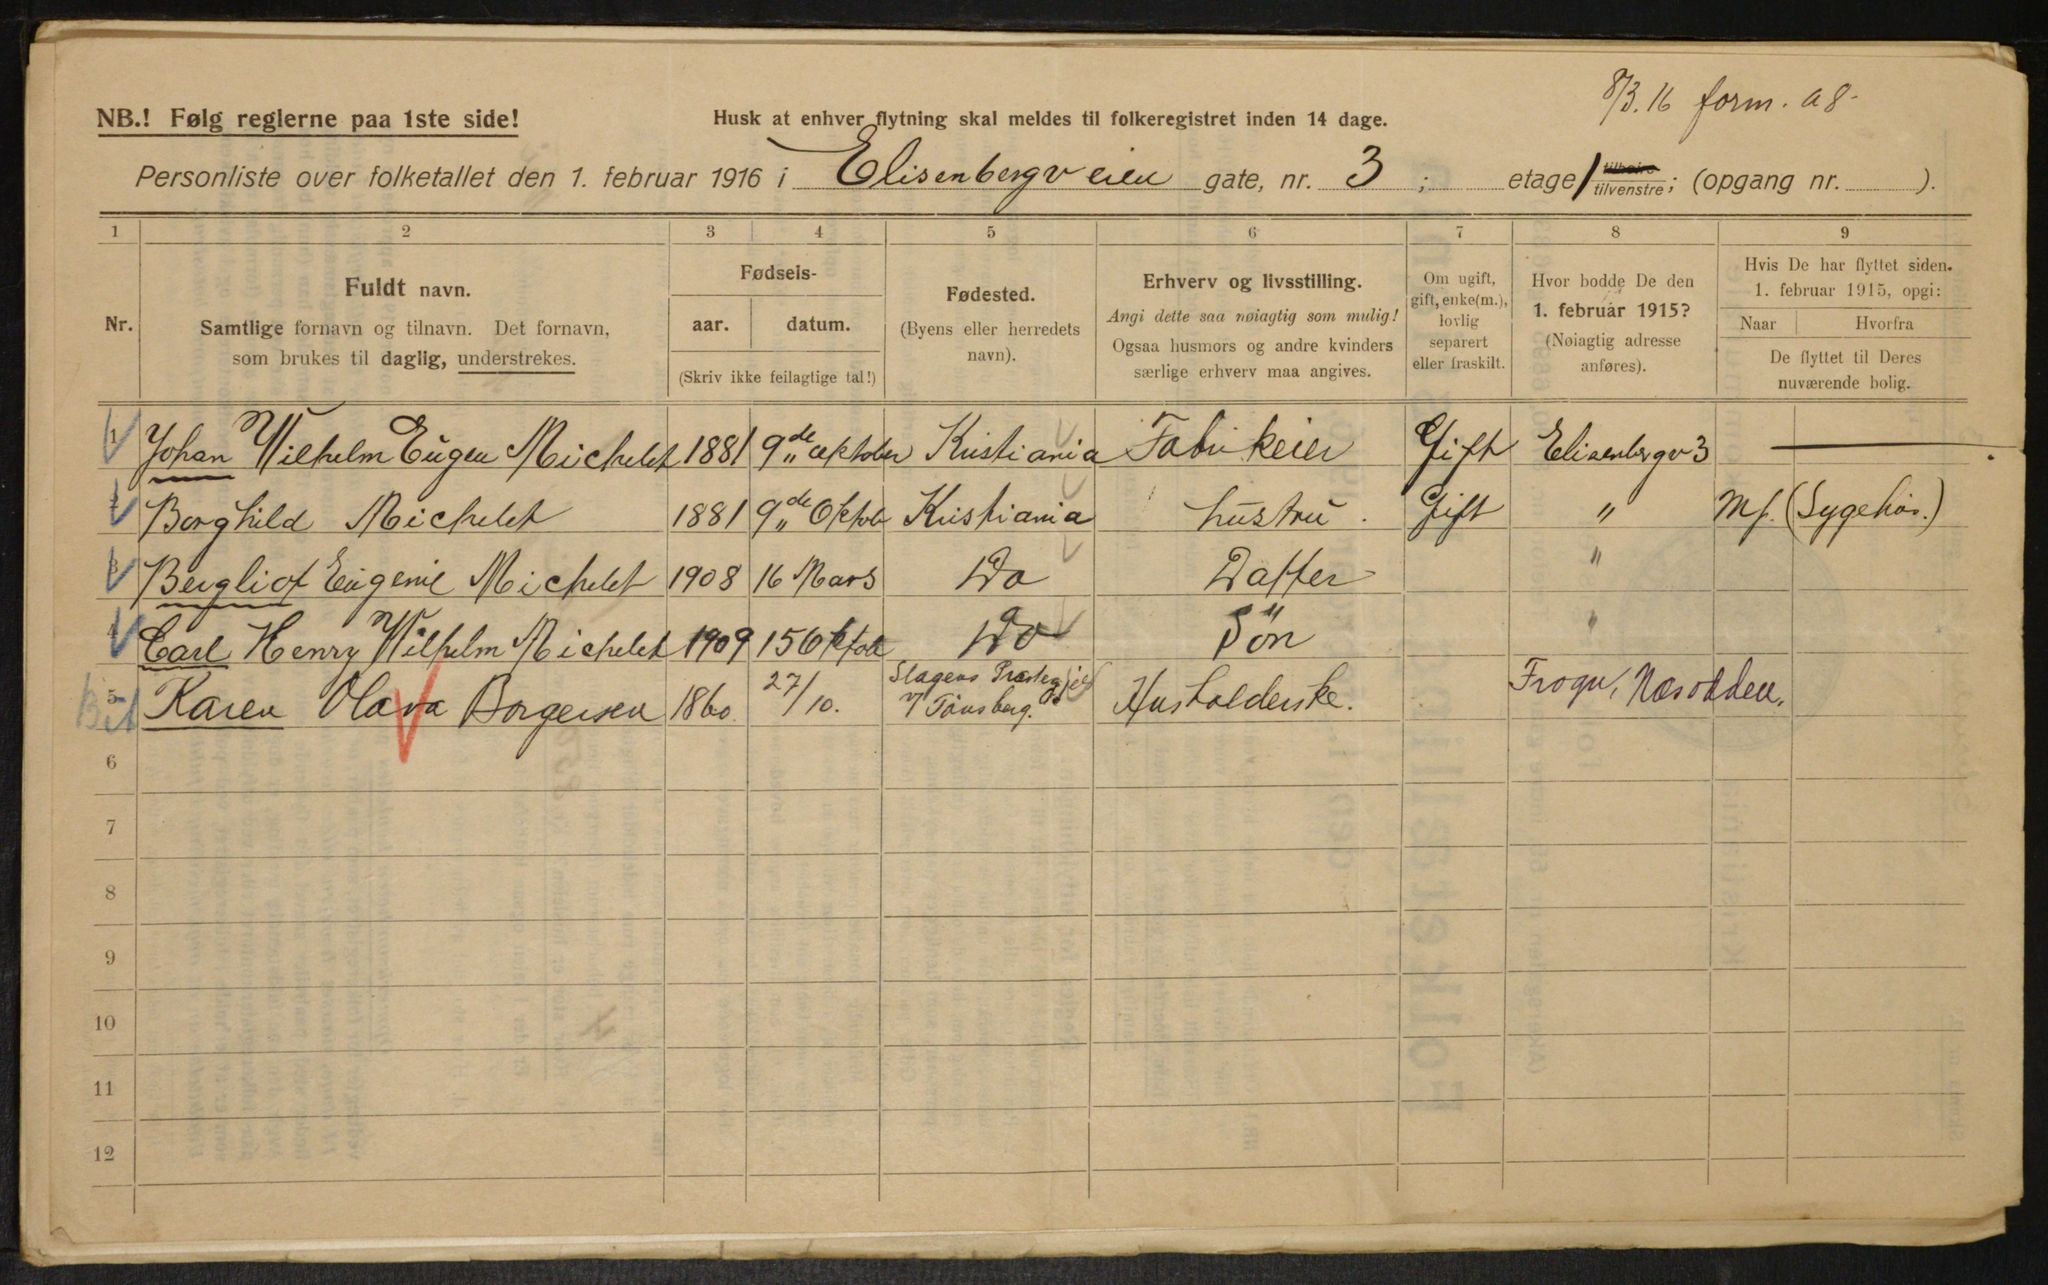 8/3.16 form. A8.
NB.! Følg reglerne paa 1ste side!
Husk at enhver flytning skal meldes til folkeregistret inden 14 dage.
Personliste over folketallet den 1. februar 1916 i Elisenbergveien gate, nr. 3 ; etage / tilhøire tilvenstre; (opgang nr. ).
1 2 3 4 5 6 7 8 9
Nr.
Fuldt navn.
Samtlige fornavn og tilnavn. Det fornavn,
som brukes til daglig, understrekes.
Fødsels-
aar. datum.
(Skriv ikke feilagtige tal!)
Fødested.
(Byens eller herredets
navn).
Erhverv og livsstilling.
Angi dette saa nøiagtig som mulig!
Ogsaa husmors og andre kvinders
særlige erhverv maa angives.
Om ugift,
gift, enke(m.),
lovlig
separert
eller fraskilt.
Hvor bodde De den
1. februar 1915?
(Nøiagtig adresse
anføres).
Hvis De har flyttet siden.
1. februar 1915, opgi:
Naar Hvorfra
De flyttet til Deres
nuværende bolig.
1 Johan Wilhelm Eugen Michelet 1881 9de oktober Kristiania Fabrikeier Gift Elisenbergv 3 —
2 Borghild Michelet 1881 9de Oktob Kristiania hustru. Gift " Mf. (Sygehus.)
3 Bergliot Eugenie Michelet 1908 16 Mars Do Datter "
4 Carl Henry Wilhelm Michelet 1909 15 Oktob Do Sön "
5 Karen Olava Borgersen 1860. 27/10. Slagens Præstegjeld v/ Tönsberg. Husholderske. Frogn, Næsodden.
6
7
8
9
10
11
12